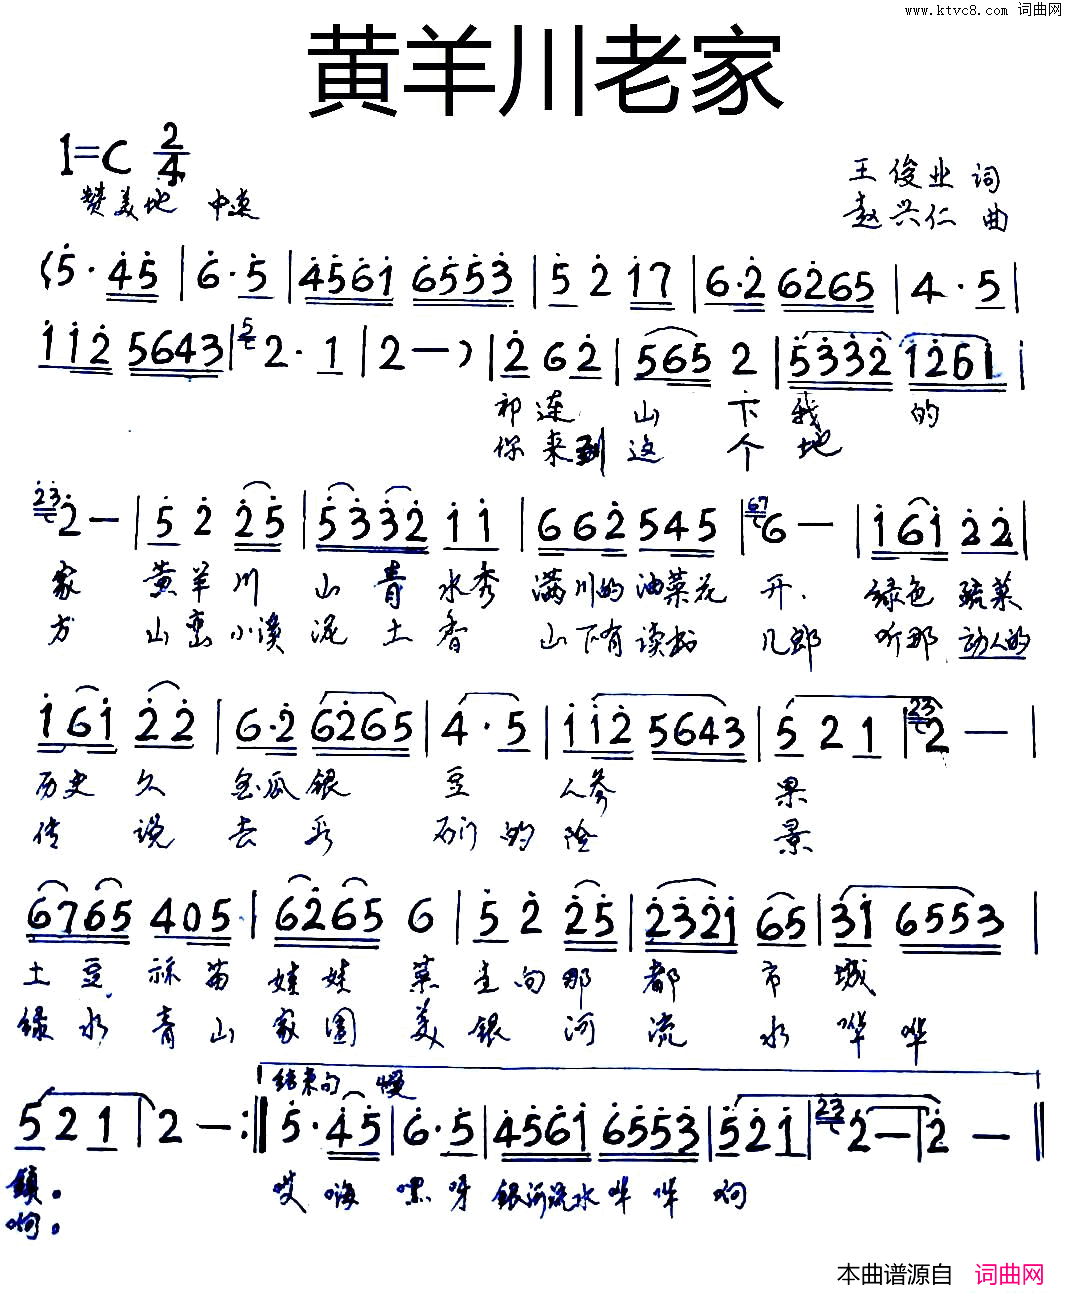 www.ktvc8.com 词曲网
黄羊川老家
1=C 2/4
王俊业 词
赞美地 中速
赵兴仁 曲
(5·45|6·5|4561 6553|5 2 17|6·2 6265|4·5|
112 5643|5 2·1|2—)|2 6 2|565 2|5332 1261|
祁连山下我的
你来到这个地
23 2—|5 2 25|5332 11|662 545|67 6—|161 22|
家 黄羊川 山青水秀 满川的油菜花 开. 绿色蔬菜
方 山峦小溪泥土香 山下有读书 儿郎 听那动人的
161 22|6·2 6265|4·5|112 5643|5 2 1|23 2—|
历史久 金瓜银豆 人参果
传说去看 石门的险景
6765 405|6265 6|5 2 25|2321 65|31 6553|
土豆 苗 娃娃菜 走向那都市城
绿水青山家园美 银河流水哗哗
结束句 慢
5 2 1|2—:‖5·45|6·5|4561 6553|5 2 1|23 2—|2—‖
镇。 哎嗨嘿呀 银河流水哗哗啊
啊。
本曲谱源自 词曲网